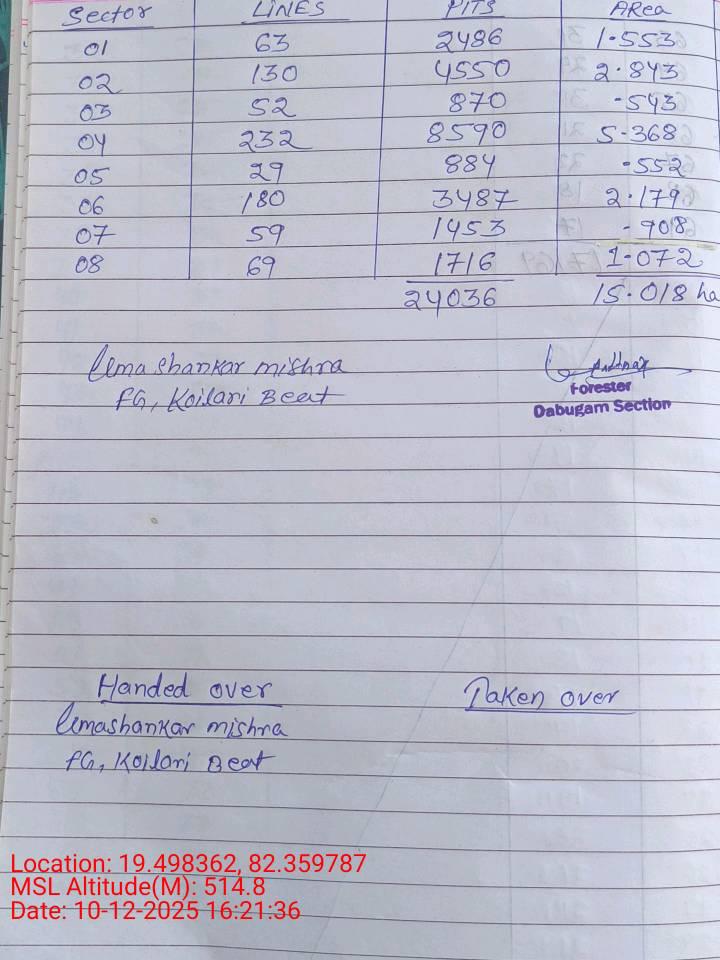 Sector LINES PITS Area
01 63 2486 1.553
02 130 4550 2.843
03 52 870 .543
04 232 8590 5.368
05 29 884 .552
06 180 3487 2.179
07 59 1453 .908
08 69 1716 1.072
24036 15.018 ha
Umashankar mishra
FG, Koilari Beat
Forester
Dabugam Section
Handed over Taken over
Umashankar mishra
FG, Koilari Beat
Location: 19.498362, 82.359787
MSL Altitude(M): 514.8
Date: 10-12-2025 16:21:36